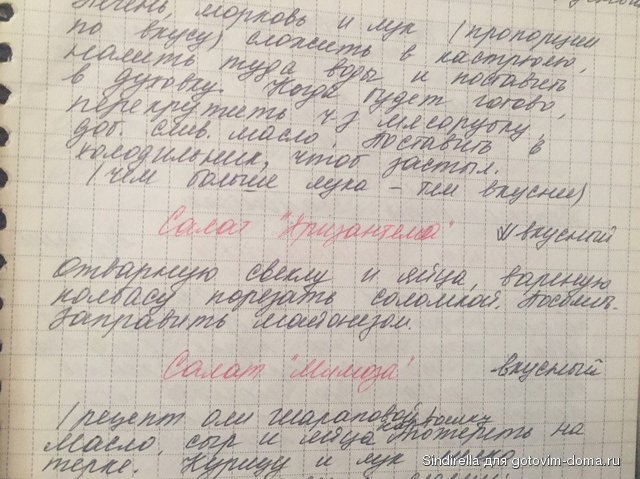 Печень, морковь и лук (пропорции
по вкусу) сложить в кастрюлю,
налить туда воды и поставить
в духовку. Когда будет готово,
перекрутить ч/з мясорубку,
доб. слив. масло. Поставить в
холодильник, чтоб застыл.
(чем больше лука – тем вкуснее)
Салат "Хризантема" вкусный
Отварную свеклу и яйца, вареную
колбасу порезать соломкой. Посолить.
Заправить майонезом.
Салат "Мимоза" вкусный
(рецепт оли шараповой
Масло, сыр и яйца потереть на
терке. Курицу и лук
Sindirella для gotovim-doma.ru